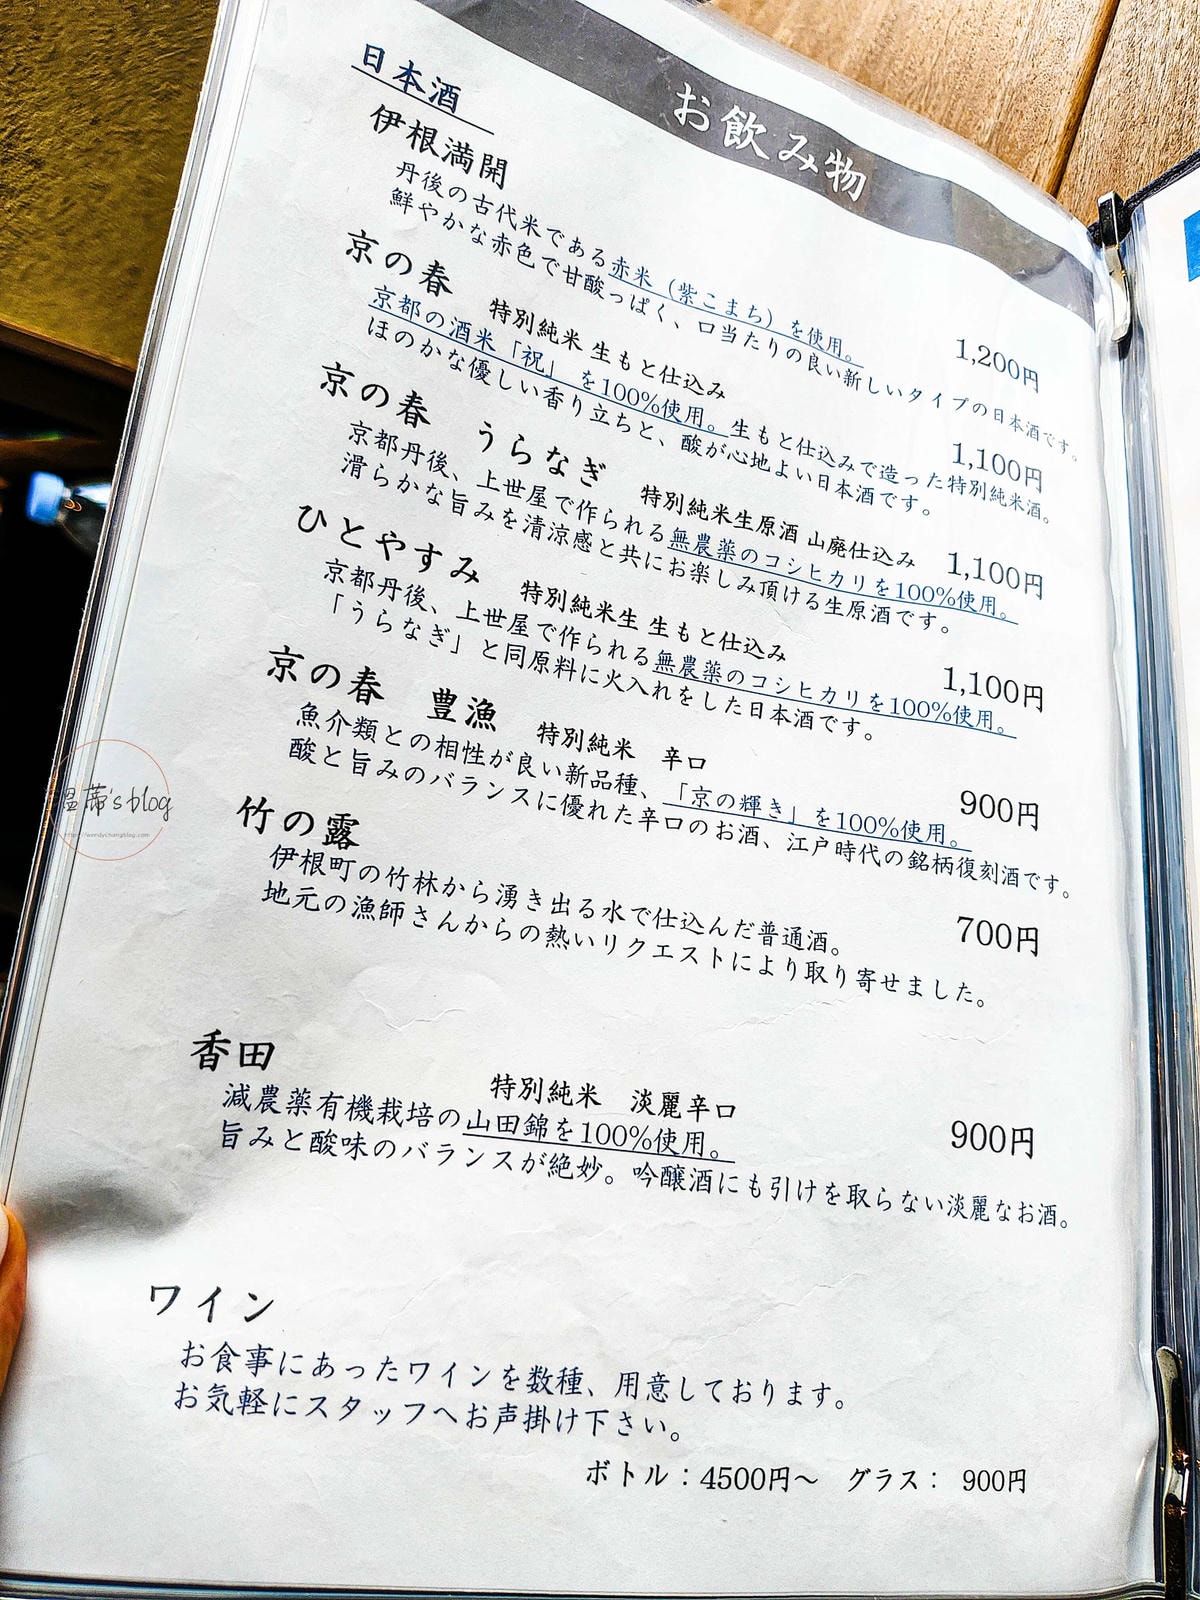 お飲み物
日本酒
伊根満開
1,200円
丹後の古代米である赤米（紫こまち）を使用。
鮮やかな赤色で甘酸っぱく、口当たりの良い新しいタイプの日本酒です。
京の春 特別純米 生もと仕込み 1,100円
京都の酒米「祝」を100%使用。生もと仕込みで造った特別純米酒。
ほのかな優しい香り立ちと、酸が心地よい日本酒です。
京の春 うらなぎ 特別純米生原酒 山廃仕込み 1,100円
京都丹後、上世屋で作られる無農薬のコシヒカリを100%使用。
滑らかな旨みを清涼感と共にお楽しみ頂ける生原酒です。
ひとやすみ 特別純米生 生もと仕込み 1,100円
京都丹後、上世屋で作られる無農薬のコシヒカリを100%使用。
「うらなぎ」と同原料に火入れをした日本酒です。
京の春 豊漁 特別純米 辛口 900円
魚介類との相性が良い新品種、「京の輝き」を100%使用。
酸と旨みのバランスに優れた辛口のお酒、江戸時代の銘柄復刻酒です。
竹の露 700円
伊根町の竹林から湧き出る水で仕込んだ普通酒。
地元の漁師さんからの熱いリクエストにより取り寄せました。
香田 特別純米 淡麗辛口 900円
減農薬有機栽培の山田錦を100%使用。
旨みと酸味のバランスが絶妙。吟醸酒にも引けを取らない淡麗なお酒。
ワイン
お食事にあったワインを数種、用意しております。
お気軽にスタッフへお声掛け下さい。
ボトル：4500円～ グラス： 900円
蒂's blog
https://wendychangblog.com